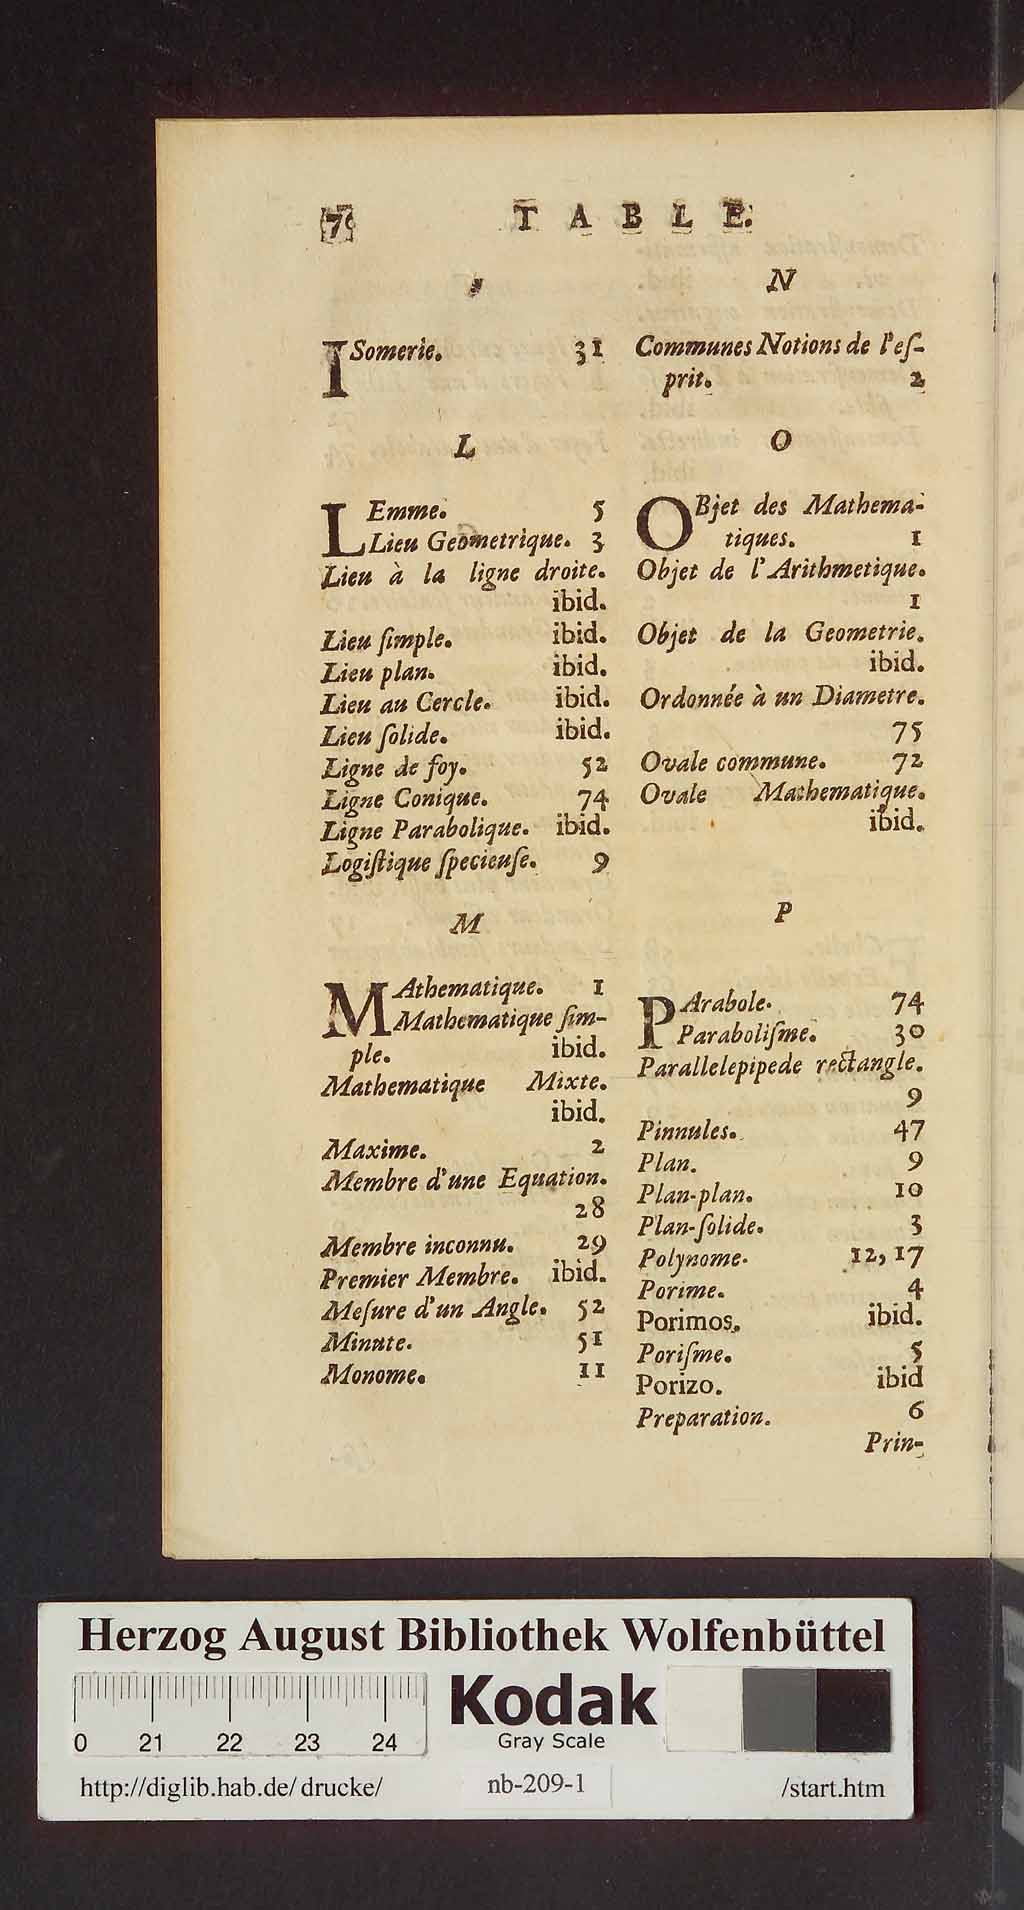 T A B L E.
ISomerie. 31
L
LEmme. 5
Lieu Geometrique. 3
Lieu à la ligne droite.
ibid.
Lieu ſimple. ibid.
Lieu plan. ibid.
Lieu au Cercle. ibid.
Lieu ſolide. ibid.
Ligne de foy. 52
Ligne Conique. 74
Ligne Parabolique. ibid.
Logiſtique ſpecieuſe. 9
M
MAthematique. 1
Mathematique ſim-
ple. ibid.
Mathematique Mixte.
ibid.
Maxime. 2
Membre d'une Equation.
28
Membre inconnu. 29
Premier Membre. ibid.
Meſure d'un Angle. 52
Minute. 51
Monome. 11
N
Communes Notions de l'eſ-
prit. 2
O
OBjet des Mathema-
tiques. 1
Objet de l'Arithmetique.
1
Objet de la Geometrie.
ibid.
Ordonnée à un Diametre.
75
Ovale commune. 72
Ovale Mathematique.
ibid.
P
PArabole. 74
Paraboliſme. 30
Parallelepipede rectangle.
9
Pinnules. 47
Plan. 9
Plan-plan. 10
Plan-ſolide. 3
Polynome. 12, 17
Porime. 4
Porimos. ibid.
Poriſme. 5
Porizo. ibid
Preparation. 6
Prin-
Herzog August Bibliothek Wolfenbüttel
Kodak
Gray Scale
0 21 22 23 24
http://diglib.hab.de/drucke/ nb-209-1 /start.htm